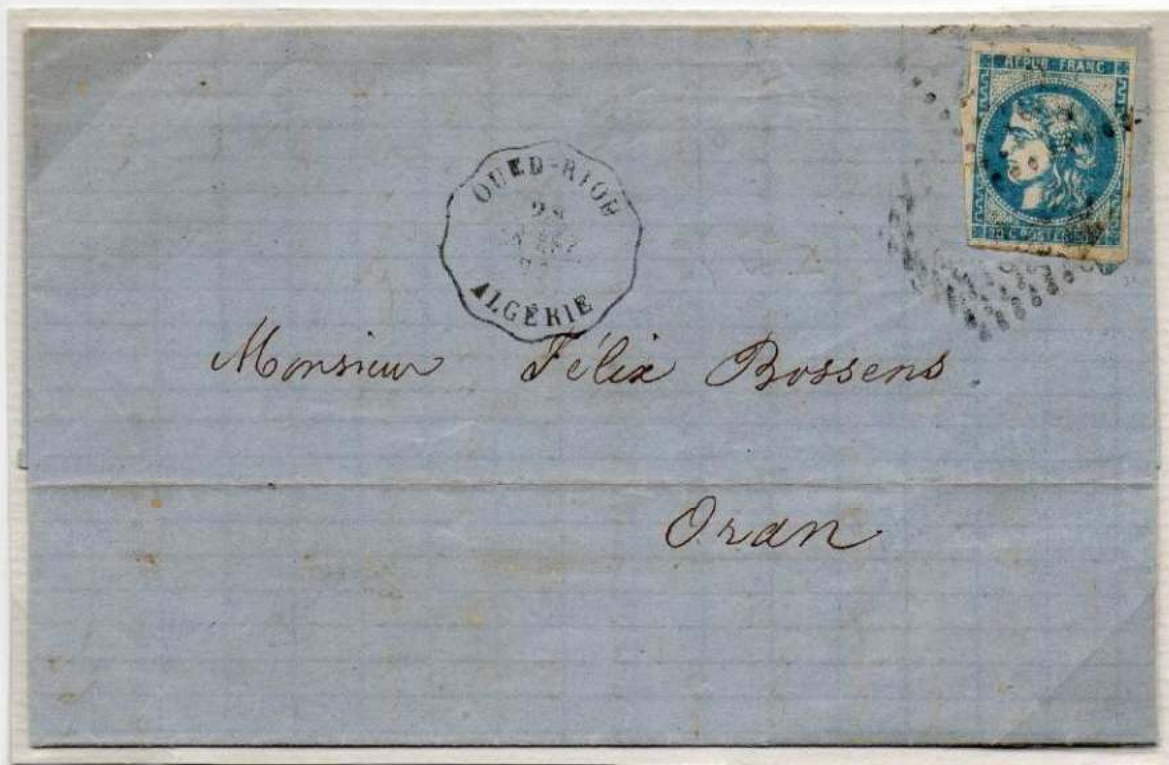 REPUB FRANC
OUED-RIOU
28
ALGÉRIE
Monsieur Félix Bossens
Oran